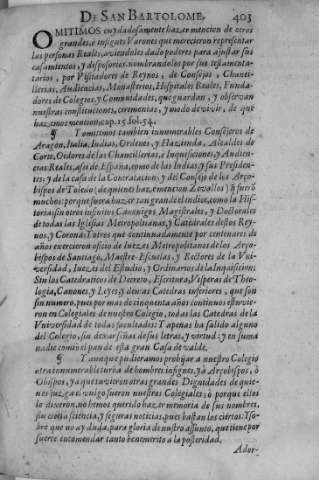 DE SAN BARTOLOME, 403
OMITIMOS cuydadosamente hazer mencion de otros
grandes, è insignes Varones que merecieron representar
las personas Reales, aviendoles dado poderes para ajustar sus
casamientos, y desposorios, nombrandolos por sus testamen-
tarios, por Visitadores de Reynos, de Consejos, Chanci-
llerias, Audiencias, Monasterios, Hospitales Reales, Funda-
dores de Colegios, y Comunidades, que guardan, y observan
nuestras constituciones, ceremonias, y modo de vivir, de que
haz emos mencion, cap. 15. fol. 54.
¶ Y omitimos tambien innumerables Consejeros de
Aragon, Italia, Indias, Ordenes, y Hazienda, Alcaldes de
Corte, Oydores de las Chancillerias, è Inquisiciones, y Audien-
cias Reales, assi de España, como de las Indias, y sus Presiden-
tes; y de la casa de la Contratacion, y del Consejo de los Arço-
bispos de Toledo (de quienes haz emencion Zevallos) que fuerõ
muchos: porque fuera hazer tan grande el indice, como la His-
toria, sin otros infinitos Canonigos Magistrales, y Doctorales
de todas las Iglesias Metropolitanas, y Catedrales destos Rey-
nos, y Corona: Y otros que continuadamente por centenares de
años exercieron oficio de Iuezes Metropolitanos de los Arço-
bispos de Santiago, Maestre-Escuelas, y Rectores de la Vni-
versidad, Iuezes del Estudio, y Ordinarios de la Inquisicion:
Sin los Catedraticos de Decreto, Escritura, Visperas de Theo-
logia, Canones, y Leyes, y demas Catedras inferiores, que son
sin numero, pues por mas de cincuenta años continuos estuvie-
ron en Colegiales de nuestro Colegio, todas las Catedras de la
Vniversidad de todas facultades: Y apenas ha salido alguno
del Colegio, sin dexar señas de sus letras, y virtud: y en suma
nadie comiò el pan de esta gran Casa de valde.
¶ Y aunque pudieramos prohijar a nuestro Colegio
otra innumerable turba de hombres insignes, yà Arçobispos, ò
Obispos, ya que tuvieron otras grandes Dignidades de quie-
nes juzga el vulgo fueron nuestros Colegiales; ò porque ellos
lo dixeron, no hemos querido hazer memoria de sus nombres,
sin cierta sciencia, y seguras noticias, pues bastan los ciertos: Y so-
bre que no ay duda, para gloria de nuestro assunto, que tiene por
suerte encomendar tanto benemerito a la posteridad.
Ador-